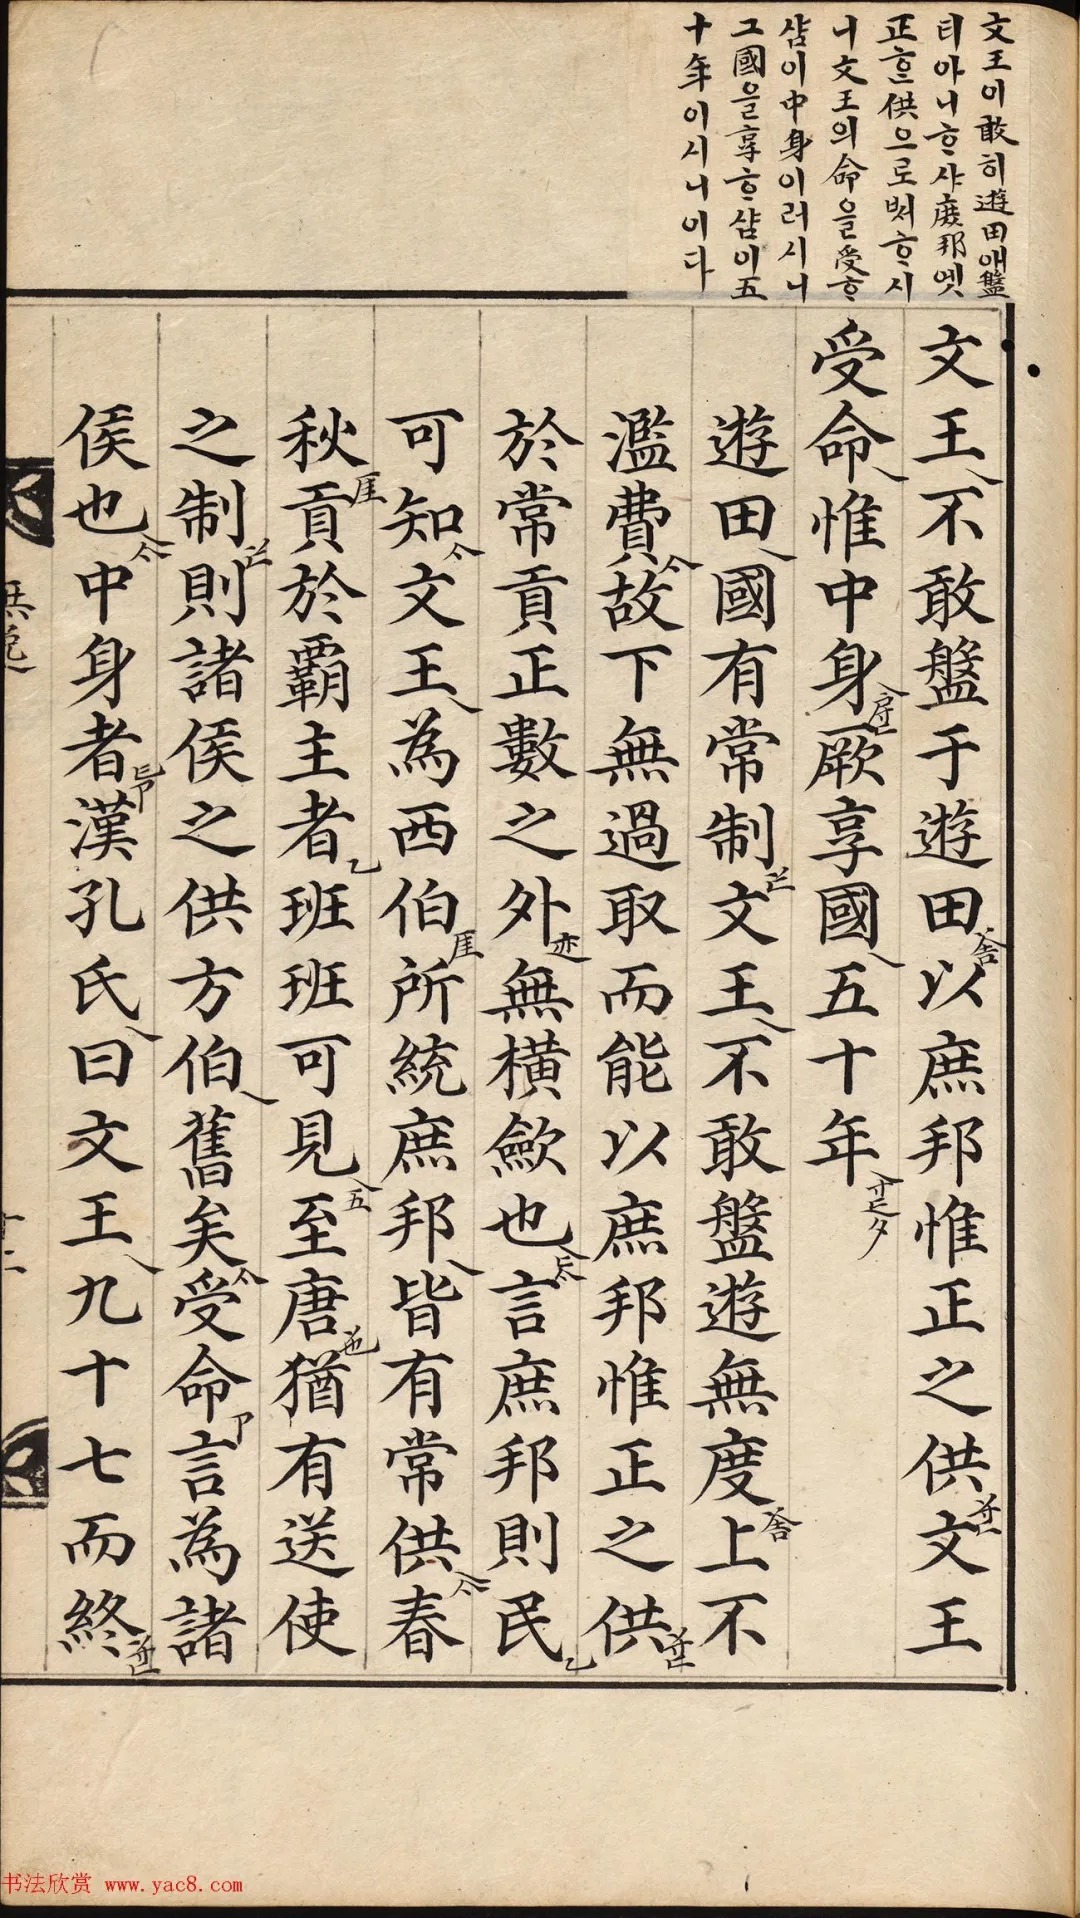 文王이敢히遊田애盤
티아니ᄒᆞ샤庶邦엣
正ᄒᆞᆫ供으로ᄡᅥᄒᆞ시
니文王의命을受ᄒᆞ
샴이中身이러시니
그國을享ᄒᆞ샴이五
十年이시니이다
文王不敢盤于遊田以庶邦惟正之供文王
受命惟中身厥享國五十年
遊田國有常制文王不敢盤遊無度上不
濫費故下無過取而能以庶邦惟正之供
於常貢正數之外無橫斂也言庶邦則民
可知文王為西伯所統庶邦皆有常供春
秋貢於霸主者班班可見至唐猶有送使
之制則諸侯之供方伯舊矣受命言為諸
侯也中身者漢孔氏曰文王九十七而終
無逸
十二
书法欣赏 www.yac8.com